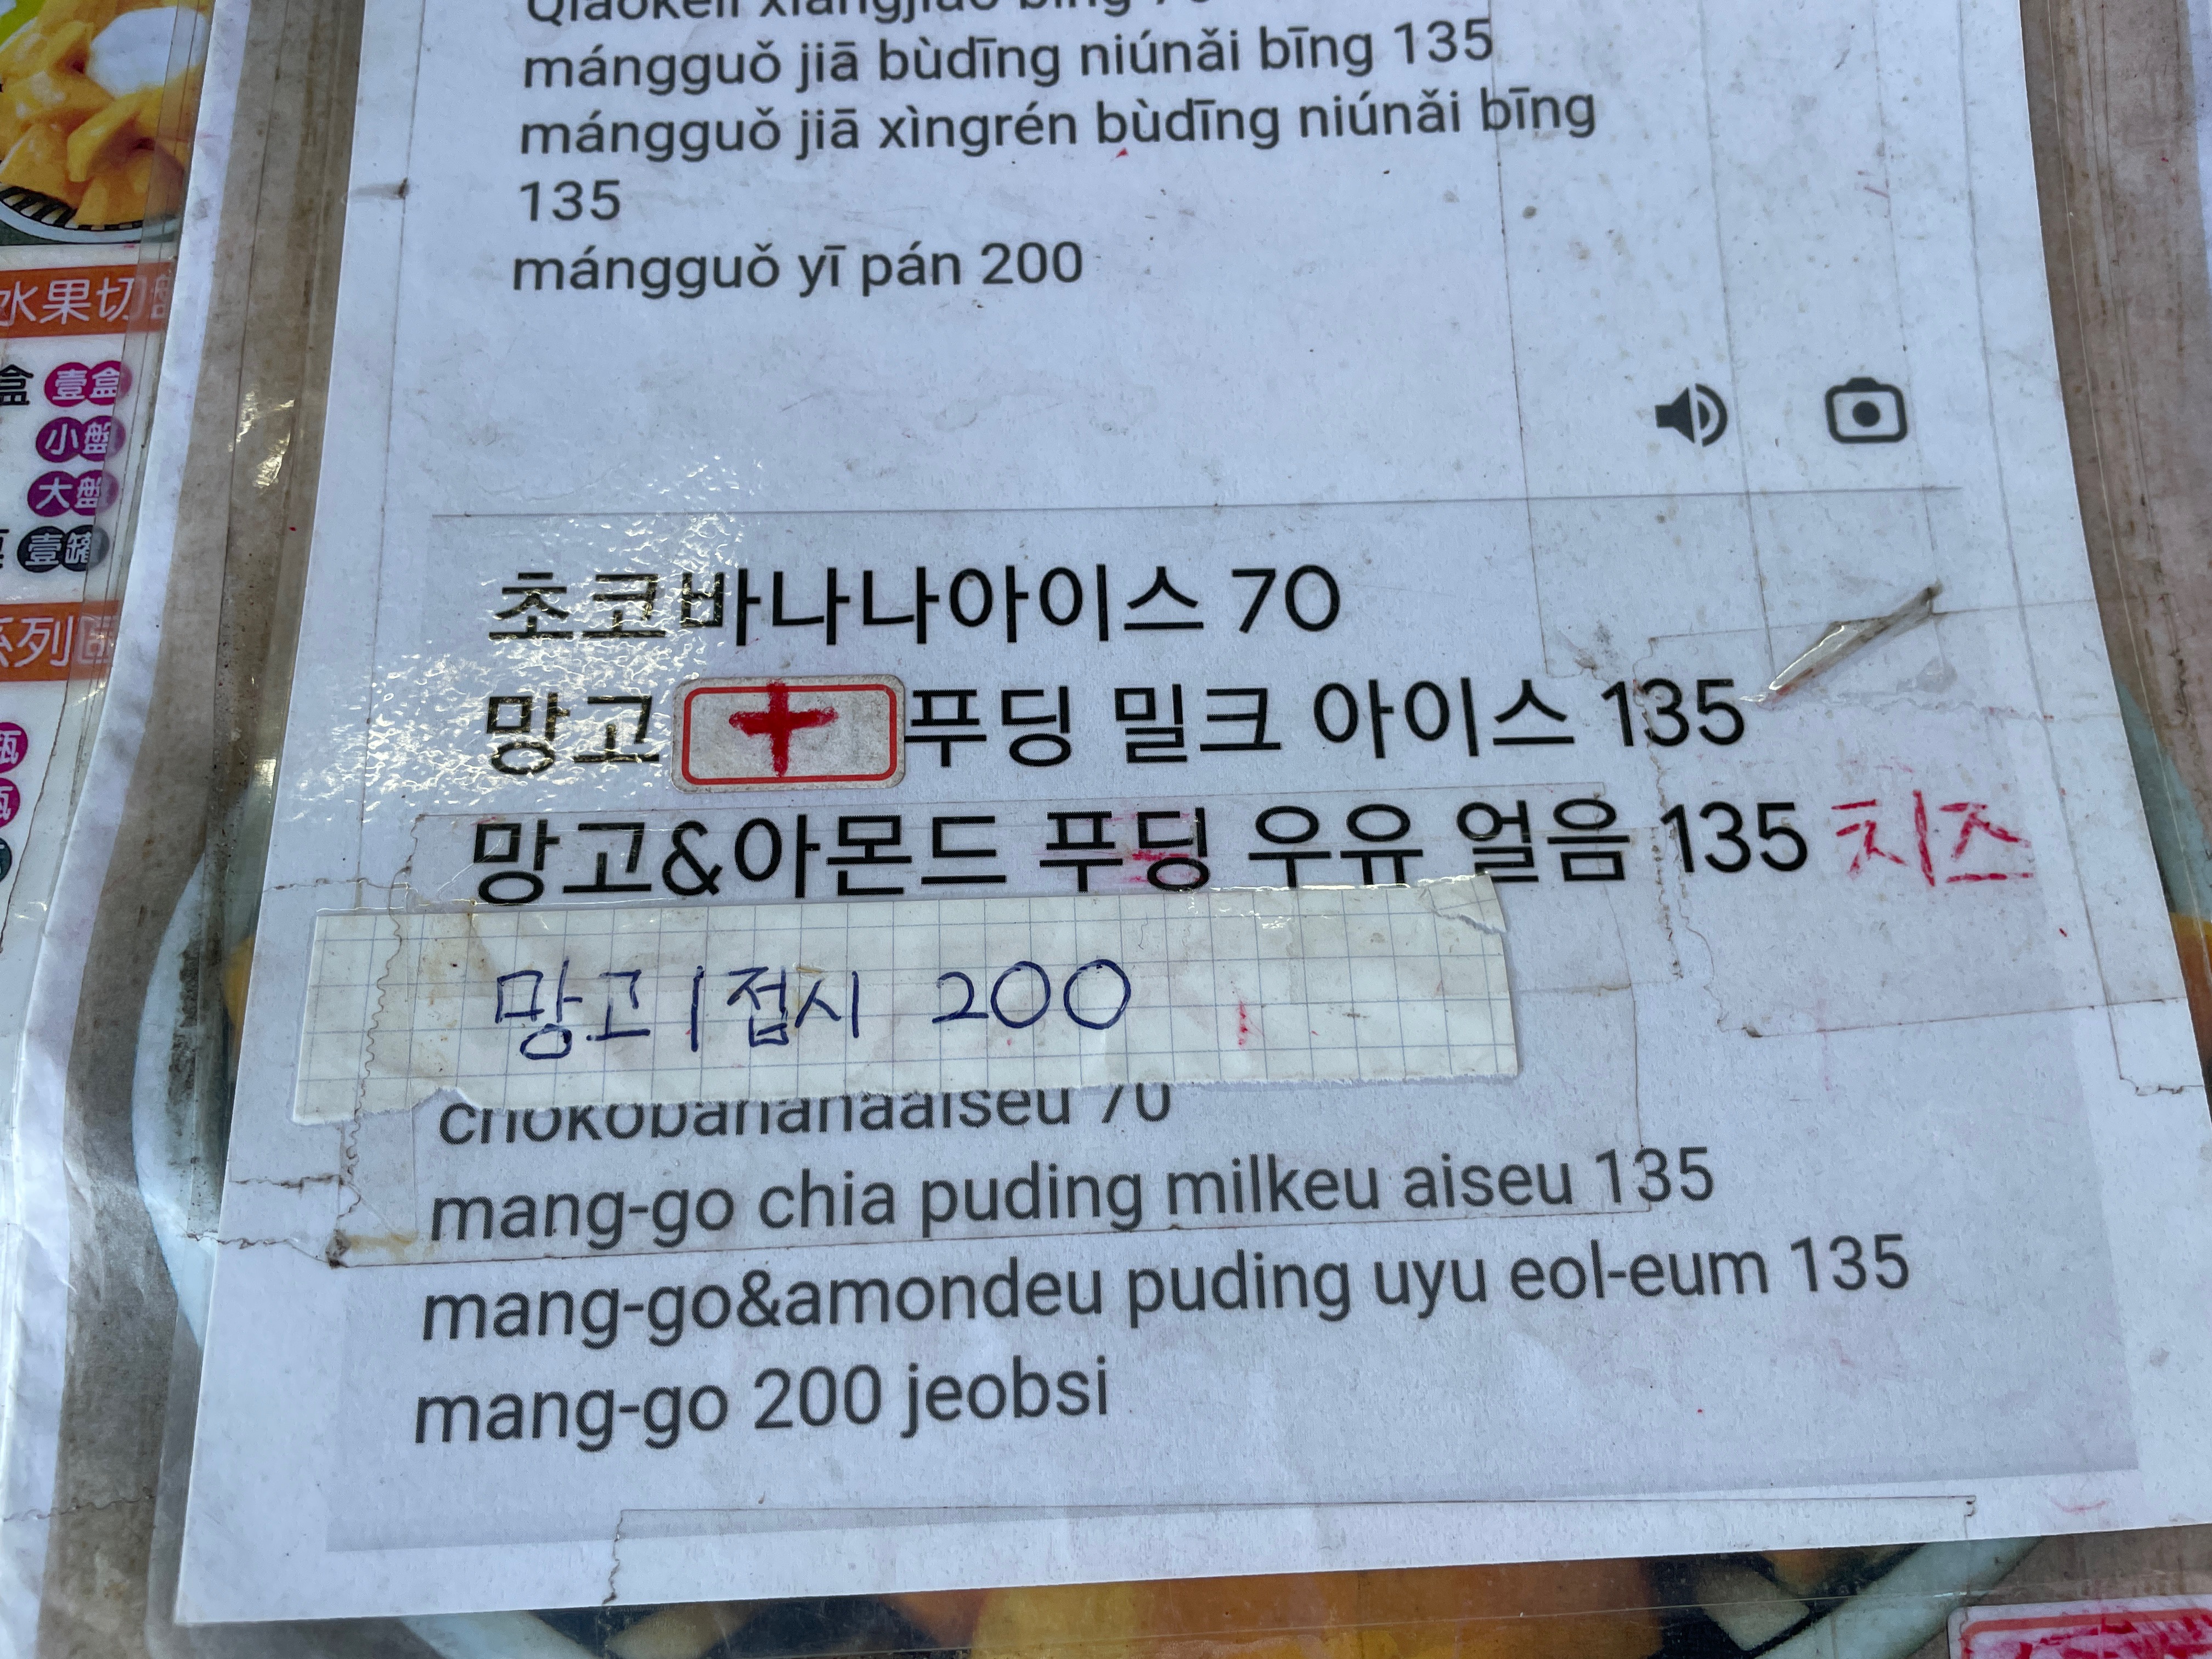 mángguǒ jiā bùdīng niúnǎi bīng 135
mángguǒ jiā xìngrén bùdīng niúnǎi bīng
135
mángguǒ yī pán 200
水果切
盒 壹盒
小盤
大盤
壹罐
系列
초코바나나아이스 70
망고 + 푸딩 밀크 아이스 135
망고&아몬드 푸딩 우유 얼음 135 치즈
망고 1 접시 200
chokobananaaiseu 70
mang-go chia puding milkeu aiseu 135
mang-go&amondeu puding uyu eol-eum 135
mang-go 200 jeobsi